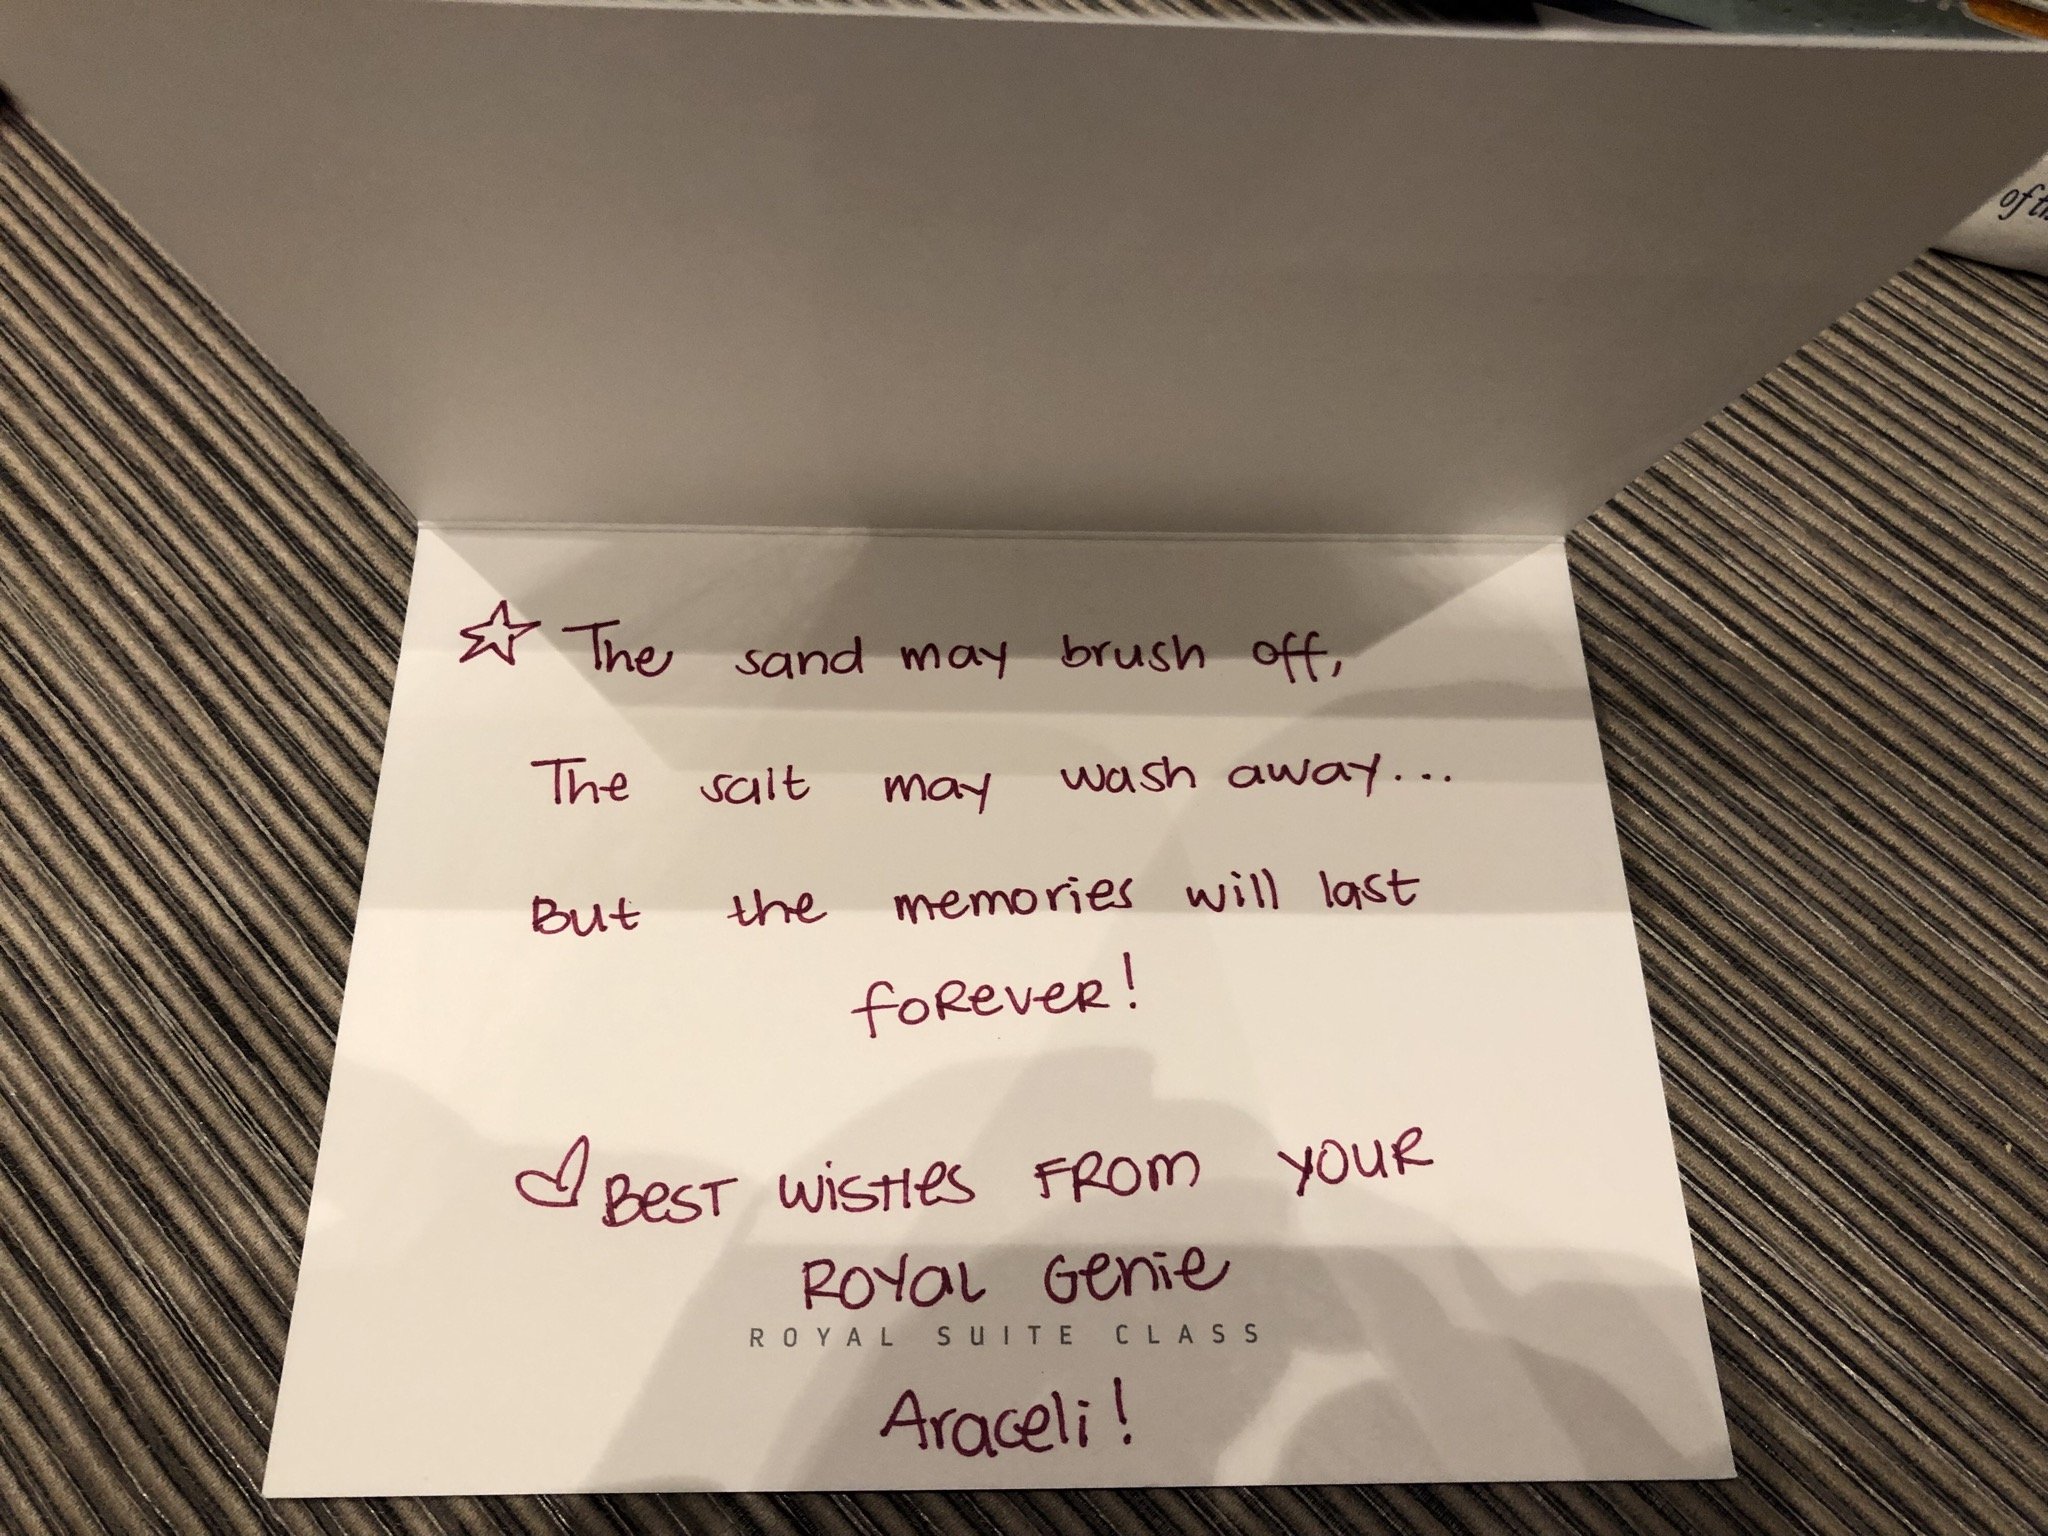 of th
The sand may brush off,
The salt may wash away...
But the memories will last
forever!
Best wishes from your
Royal Genie
ROYAL SUITE CLASS
Araceli!